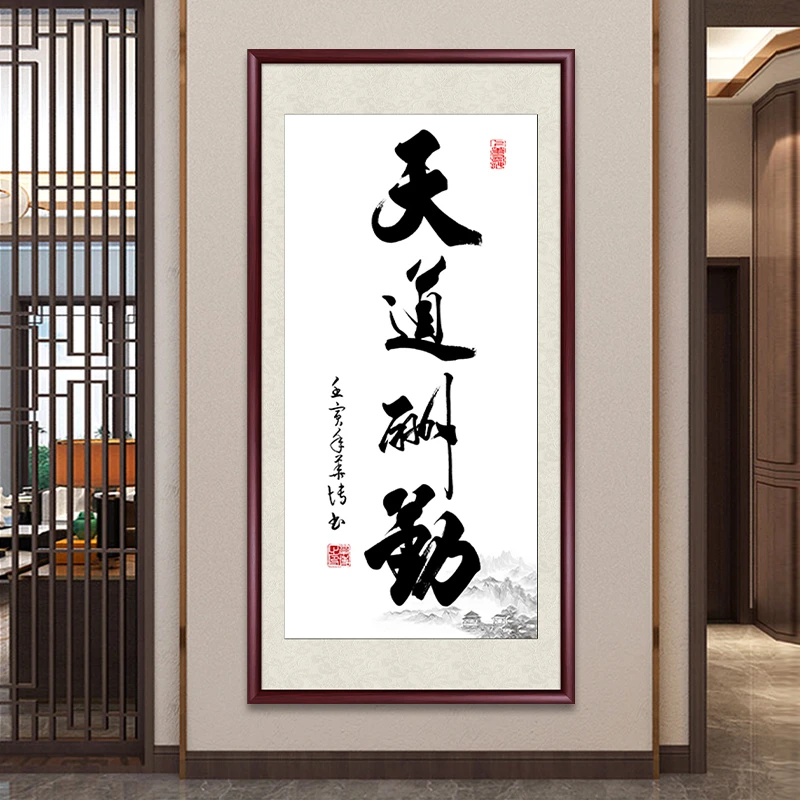 天道酬勤
壬寅年英博书